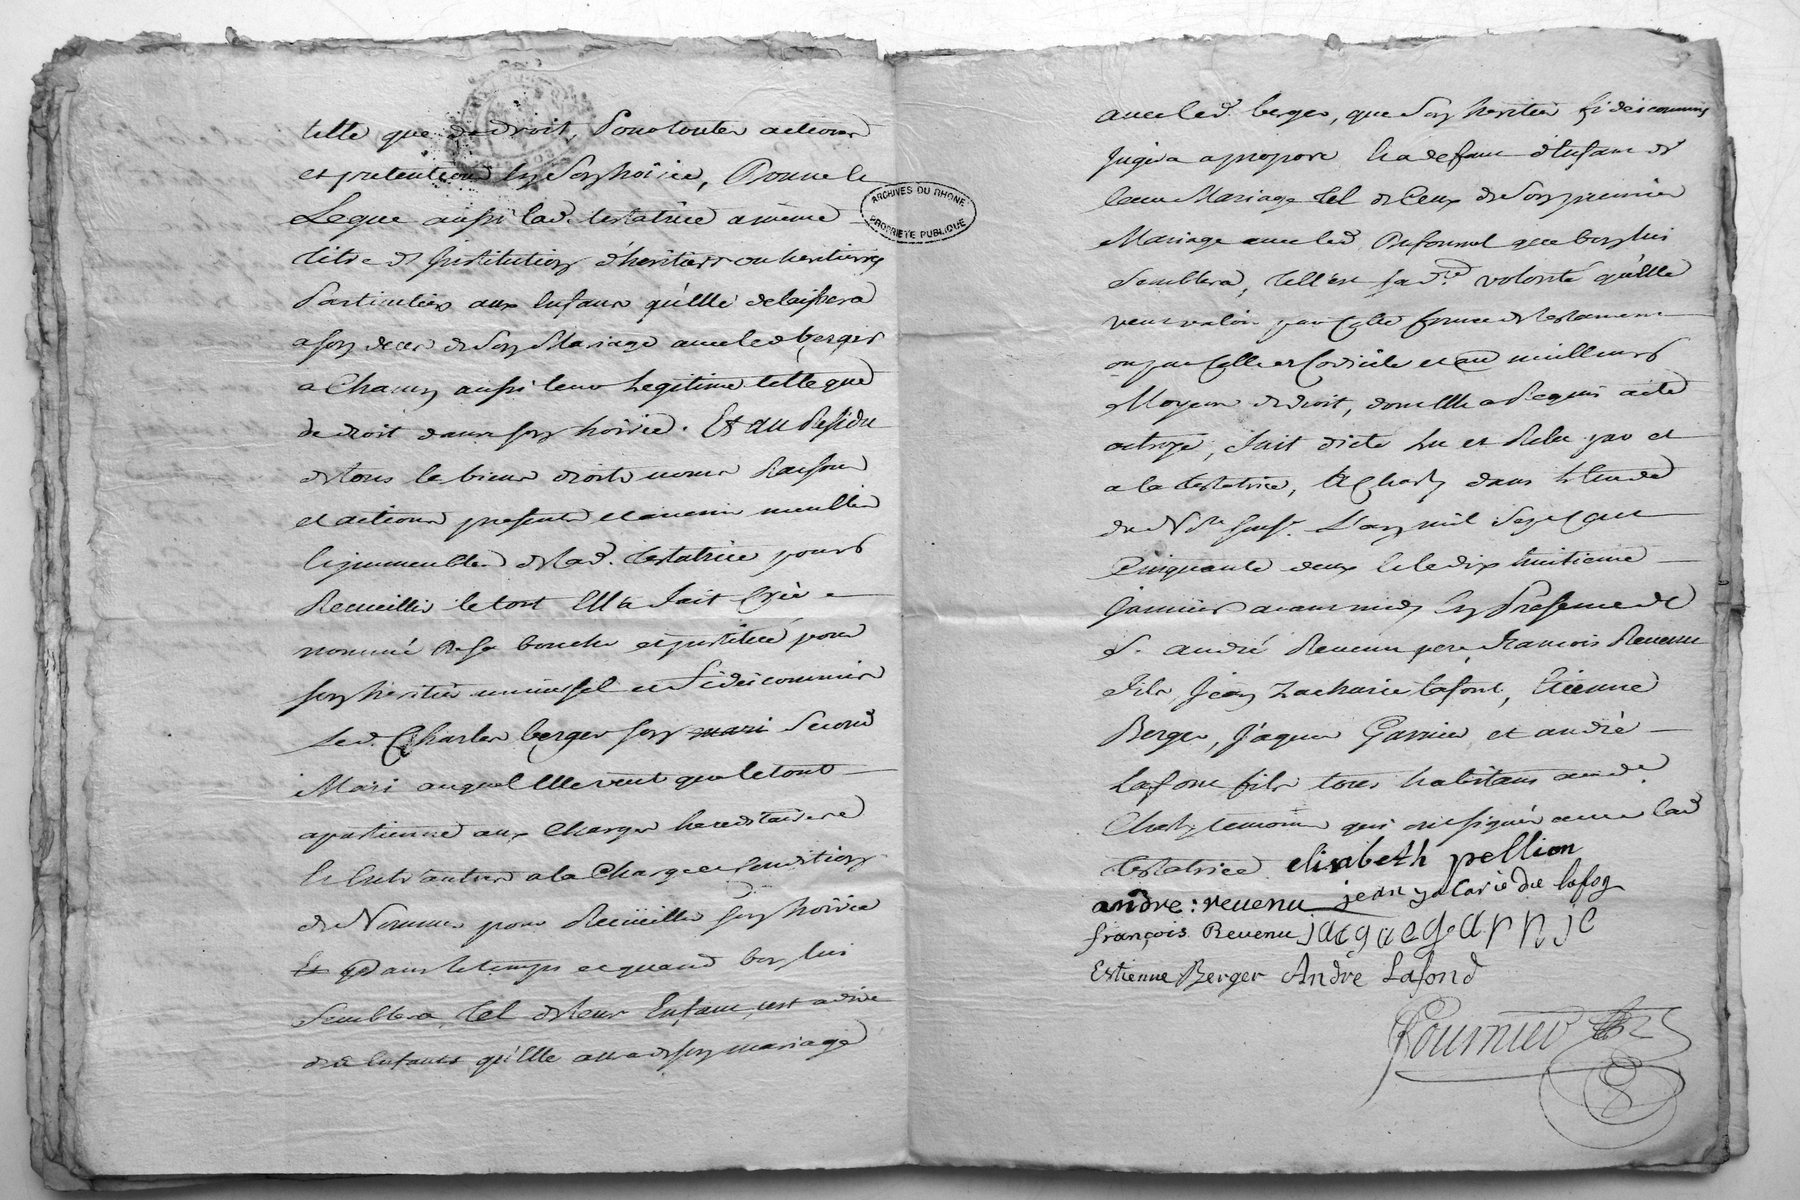 telle que de droit, pour toutes actions
et pretentions en son hoirie, Donne et
Legue aussi lad. testatrice a meme
titre d'Institution d'heritiers ou heritieres
Particuliers aux Enfans qu'elle delaissera
a son deces de son Mariage avec led berger
a Chacun aussi leur Legitime telle que
de droit dans son hoirie. Et au Residu
de tous les biens droits noms Raisons
et actions presents et avenir meubles
et immeubles de lad. testatrice pour
Recueillir le tout Elle a fait Créé
nommé de sa bouche et institué pour
son heritier universel et fideicommis
Led. Charles berger son mari second
Mari auquel Elle veut que le tout
apartienne aux Charges hereditaires
et entr'autres a la Charge et Condition
de Nommer pour Recueillir son hoirie
Et dans le temps et quand bon lui
semblera, tel de leurs Enfans, c'est a dire
des Enfants qu'Elle aura de son mariage
ARCHIVES DU RHONE
PROPRIETE PUBLIQUE
avec led. berger, que son heritier fideicommis
jugera apropos Et a defaut d'Enfans de
leur Mariage tel de Ceux de son premier
Mariage avec led. que bon lui
semblera, telle est sa d.te volonté qu'elle
veut valoir par Cette forme de testament
ou par Celle de Codicile et au meilleur
Moyen de droit, dont Elle a Requis acte
octroyé, fait dicté Lu et Relu par et
a la testatrice, a Charly dans l'Etude
du N.re sous.é L'an mil Sept Cent
Cinquante deux et le dix huitieme
Janvier avant midy En Presence de
S. andré Revenu pere, francois Revenu
fils Jean Zacharie lafont, Etienne
Berger, Jaques Garnier et andré
Lafont fils tous habitans aud.
Charly temoins qui ont signé avec lad
testatrice. elisabeth pellion
andre: revenu jean zacarie de lafon
françois Revenu jacque garnie
Estienne Berger André Lafond
Fournier